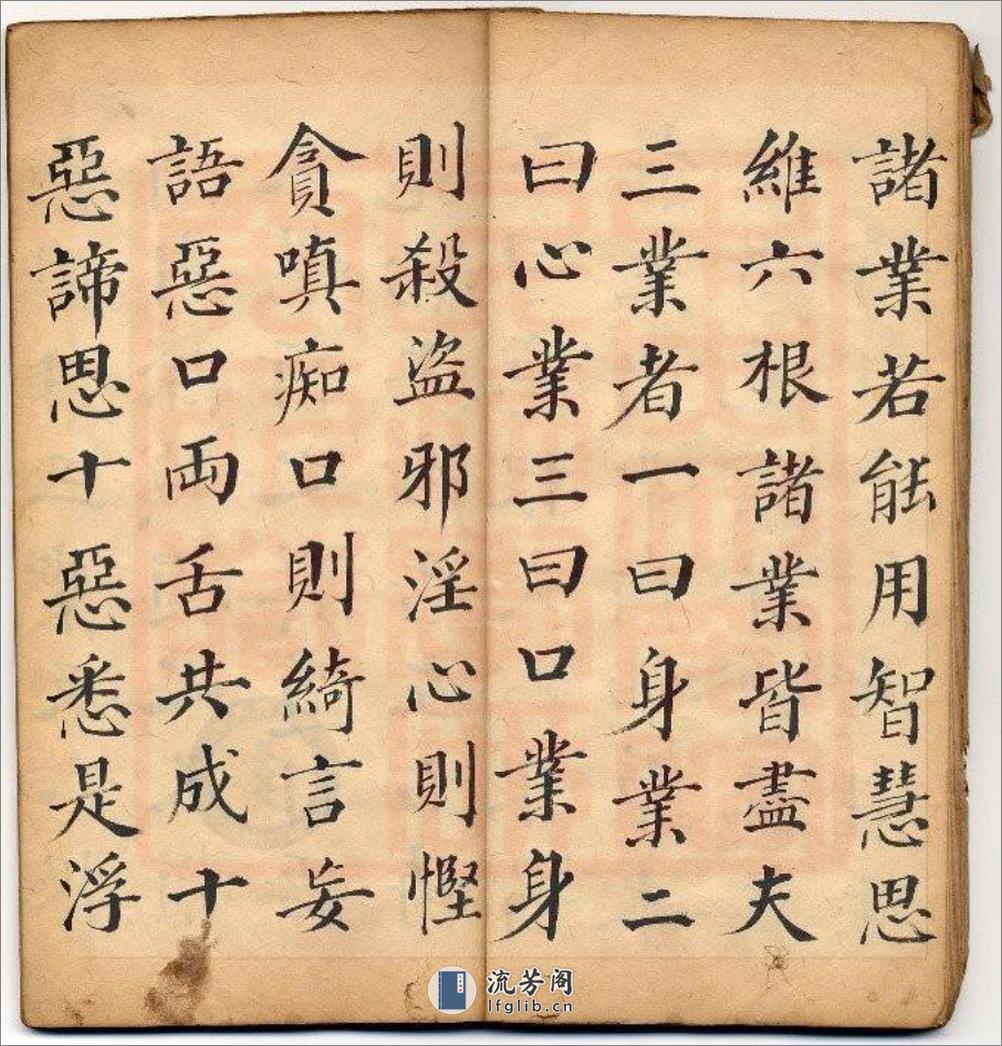 諸業若能用智慧思
維六根諸業皆盡夫
三業者一曰身業二
曰心業三曰口業身
則殺盜邪淫心則慳
貪嗔痴口則綺言妄
語惡口両舌共成十
惡諦思十惡悉是浮
流芳阁
lfglib.cn